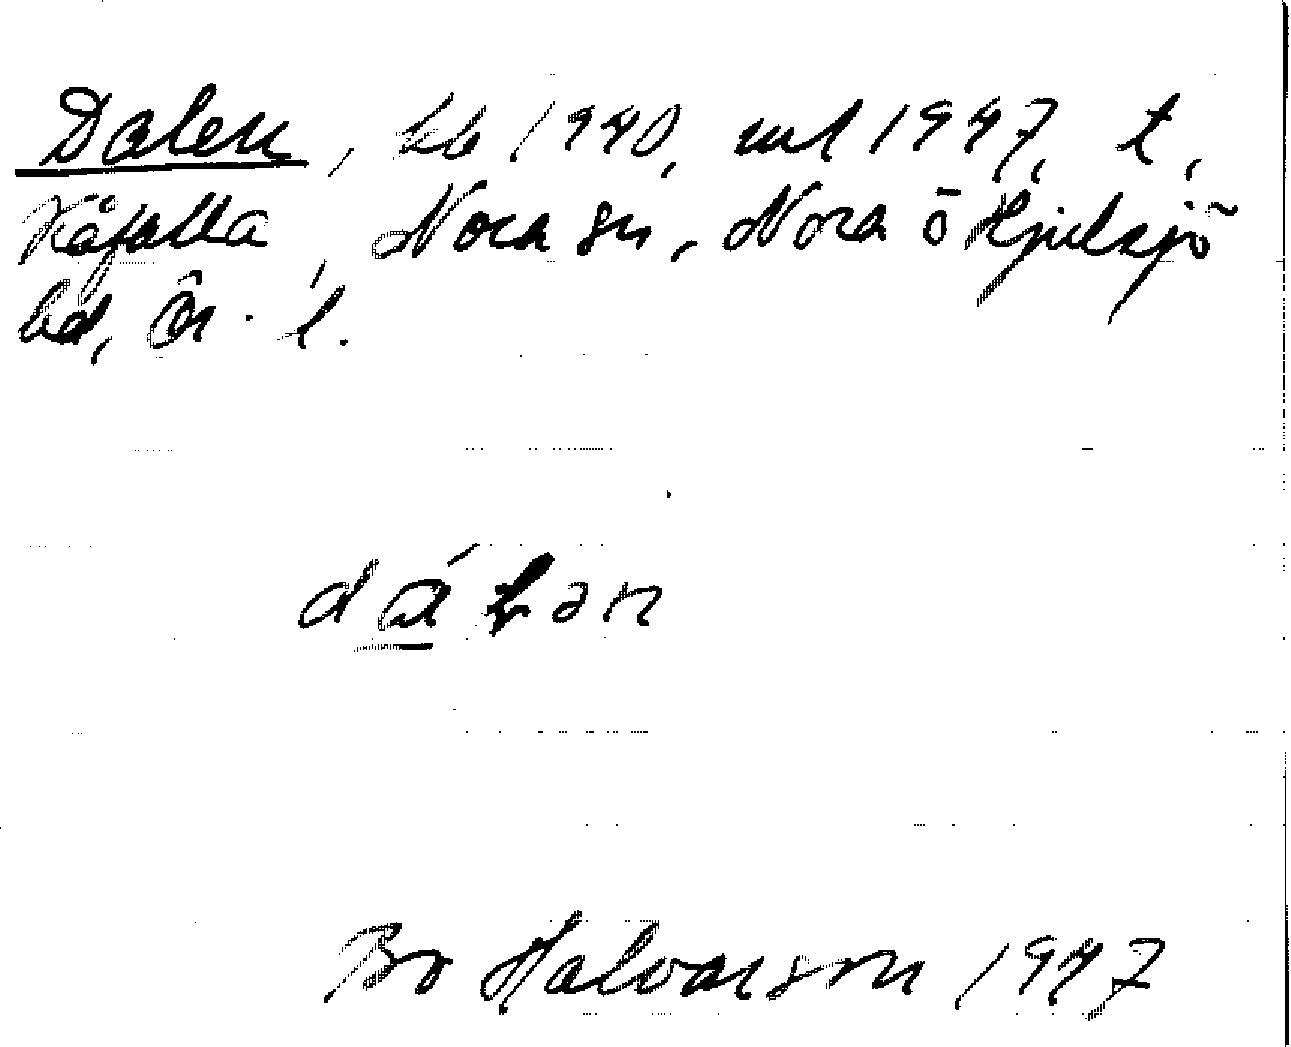 Dalen, kb 1940, uul 1947, t,
Kåfalla, Nora sn, Nora ō Hjulsjö
bd, Ör. l.
dálan
Bo Halvarson 1947